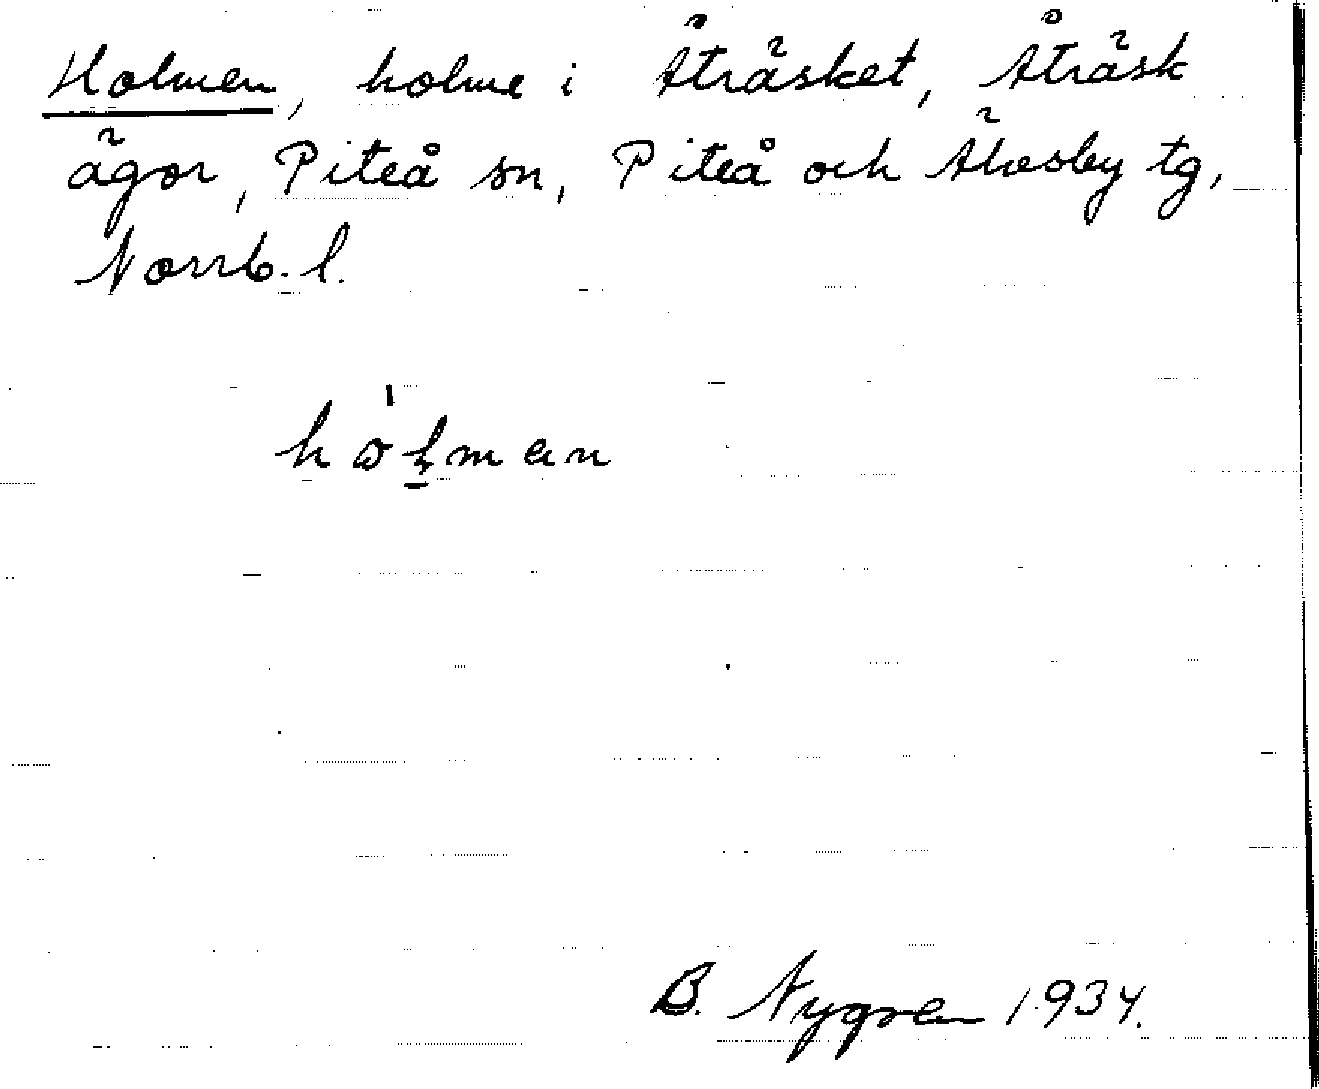 Holmen, holme i Åträsket, Åträsk
ägor, Piteå sn, Piteå och Älvsby tg,
Norrb. l.
hòḷman
B. Nygren 1934.